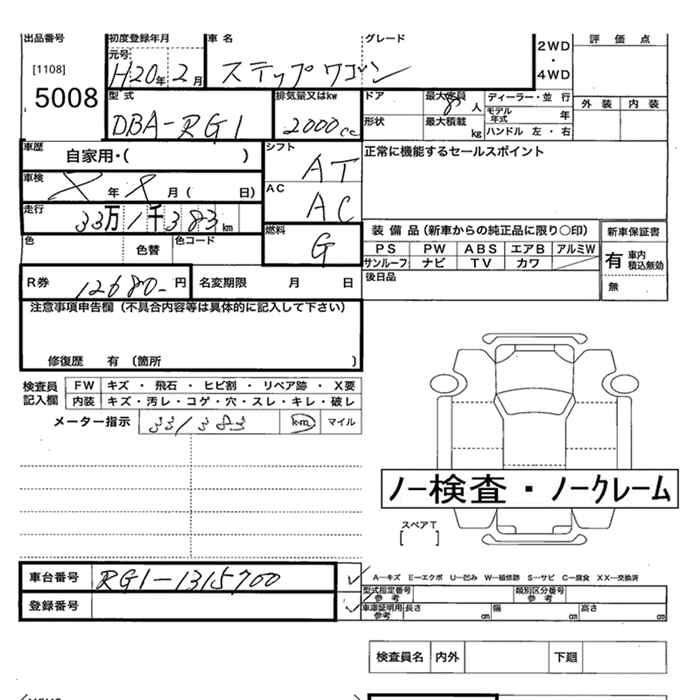 出品番号 初度登録年月 車名 グレード
元号
H20年2月 ステップワゴン
2WD
・
4WD
評価点
外装 内装
[1108]
5008
型式 排気量又はkw
DBA-RG1 2000cc
ドア 最大定員 8人 ディーラー・並行
形状 最大積載 kg モデル年式 年
ハンドル 左・右
車歴 自家用・( )
シフト AT
正常に機能するセールスポイント
車検 X年 X月( 日)
AC AC
走行 33万1千383km
燃料 G
色 色替 色コード
装備品(新車からの純正品に限り○印) 新車保証書
PS PW ABS エアB アルミW
サンルーフ ナビ TV カワ
有 車内積込無効
無
後日品
R券 12680-円 名変期限 月 日
注意事項申告欄(不具合内容等は具体的に記入して下さい)
修復歴 有(箇所 )
検査員記入欄
FW キズ・飛石・ヒビ割・リペア跡・X要
内装 キズ・汚レ・コゲ・穴・スレ・キレ・破レ
メーター指示 331383 km マイル
ノー検査・ノークレーム
スペアT
[ ]
車台番号 RG1-1315700
登録番号
A-キズ E-エクボ U-凹み W-補修跡 S-サビ C-腐食 XX-交換済
型式指定番号 参考 類別区分番号
車庫証明用 参考 長さ cm 幅 cm 高さ cm
検査員名 内外 下廻